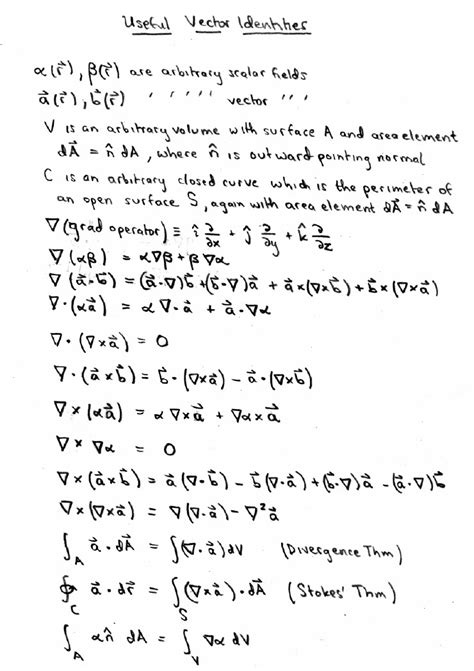 Useful Vector Identities
α(r⃗), β(r⃗) are arbitrary scalar fields
a⃗(r⃗), b⃗(r⃗) ' ' ' ' ' vector ' ' '
V is an arbitrary volume with surface A and area element
dA⃗ = n̂ dA, where n̂ is outward pointing normal
C is an arbitrary closed curve which is the perimeter of
an open surface S, again with area element dA⃗ = n̂ dA
∇ (grad operator) ≡ î ∂/∂x + ĵ ∂/∂y + k̂ ∂/∂z
∇ (αβ) = α∇β + β∇α
∇ (a⃗·b⃗) = (a⃗·∇)b⃗ + (b⃗·∇)a⃗ + a⃗×(∇×b⃗) + b⃗×(∇×a⃗)
∇·(αa⃗) = α ∇·a⃗ + a⃗·∇α
∇·(∇×a⃗) = 0
∇·(a⃗×b⃗) = b⃗·(∇×a⃗) − a⃗·(∇×b⃗)
∇×(αa⃗) = α ∇×a⃗ + ∇α×a⃗
∇×∇α = 0
∇×(a⃗×b⃗) = a⃗(∇·b⃗) − b⃗(∇·a⃗) + (b⃗·∇)a⃗ − (a⃗·∇)b⃗
∇×(∇×a⃗) = ∇(∇·a⃗) − ∇²a⃗
∫_A a⃗·dA⃗ = ∫(∇·a⃗)dV (Divergence Thm)
∮_C a⃗·dr⃗ = ∫_S (∇×a⃗)·dA⃗ (Stokes' Thm)
∫_A αn̂ dA = ∫_V ∇α dV